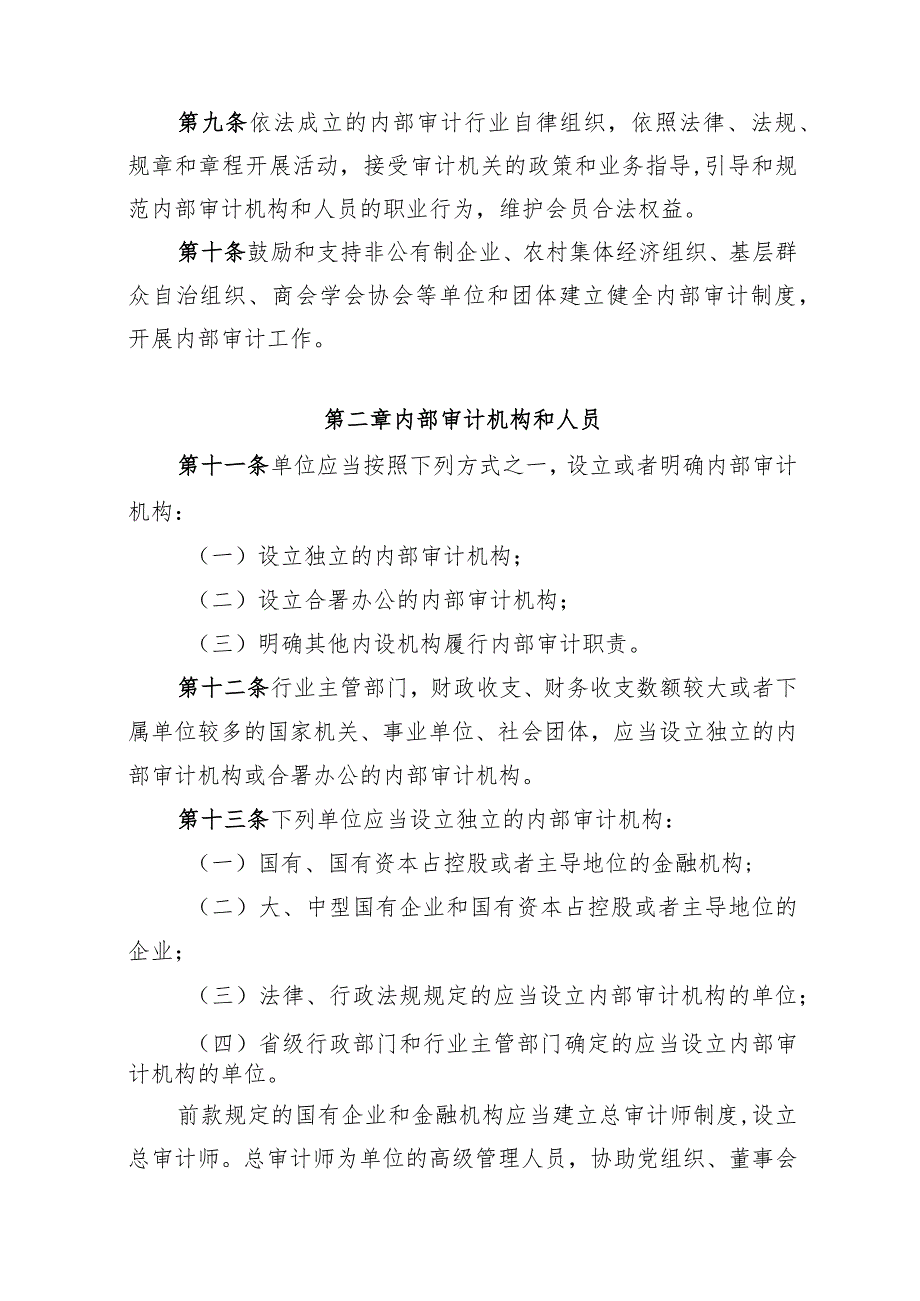 第九条依法成立的内部审计行业自律组织，依照法律、法规、
规章和章程开展活动，接受审计机关的政策和业务指导,引导和规
范内部审计机构和人员的职业行为，维护会员合法权益。
第十条鼓励和支持非公有制企业、农村集体经济组织、基层群
众自治组织、商会学会协会等单位和团体建立健全内部审计制度，
开展内部审计工作。
第二章内部审计机构和人员
第十一条单位应当按照下列方式之一，设立或者明确内部审计
机构：
（一）设立独立的内部审计机构；
（二）设立合署办公的内部审计机构；
（三）明确其他内设机构履行内部审计职责。
第十二条行业主管部门，财政收支、财务收支数额较大或者下
属单位较多的国家机关、事业单位、社会团体，应当设立独立的内
部审计机构或合署办公的内部审计机构。
第十三条下列单位应当设立独立的内部审计机构：
（一）国有、国有资本占控股或者主导地位的金融机构；
（二）大、中型国有企业和国有资本占控股或者主导地位的
企业；
（三）法律、行政法规规定的应当设立内部审计机构的单位；
（四）省级行政部门和行业主管部门确定的应当设立内部审
计机构的单位。
前款规定的国有企业和金融机构应当建立总审计师制度,设立
总审计师。总审计师为单位的高级管理人员，协助党组织、董事会